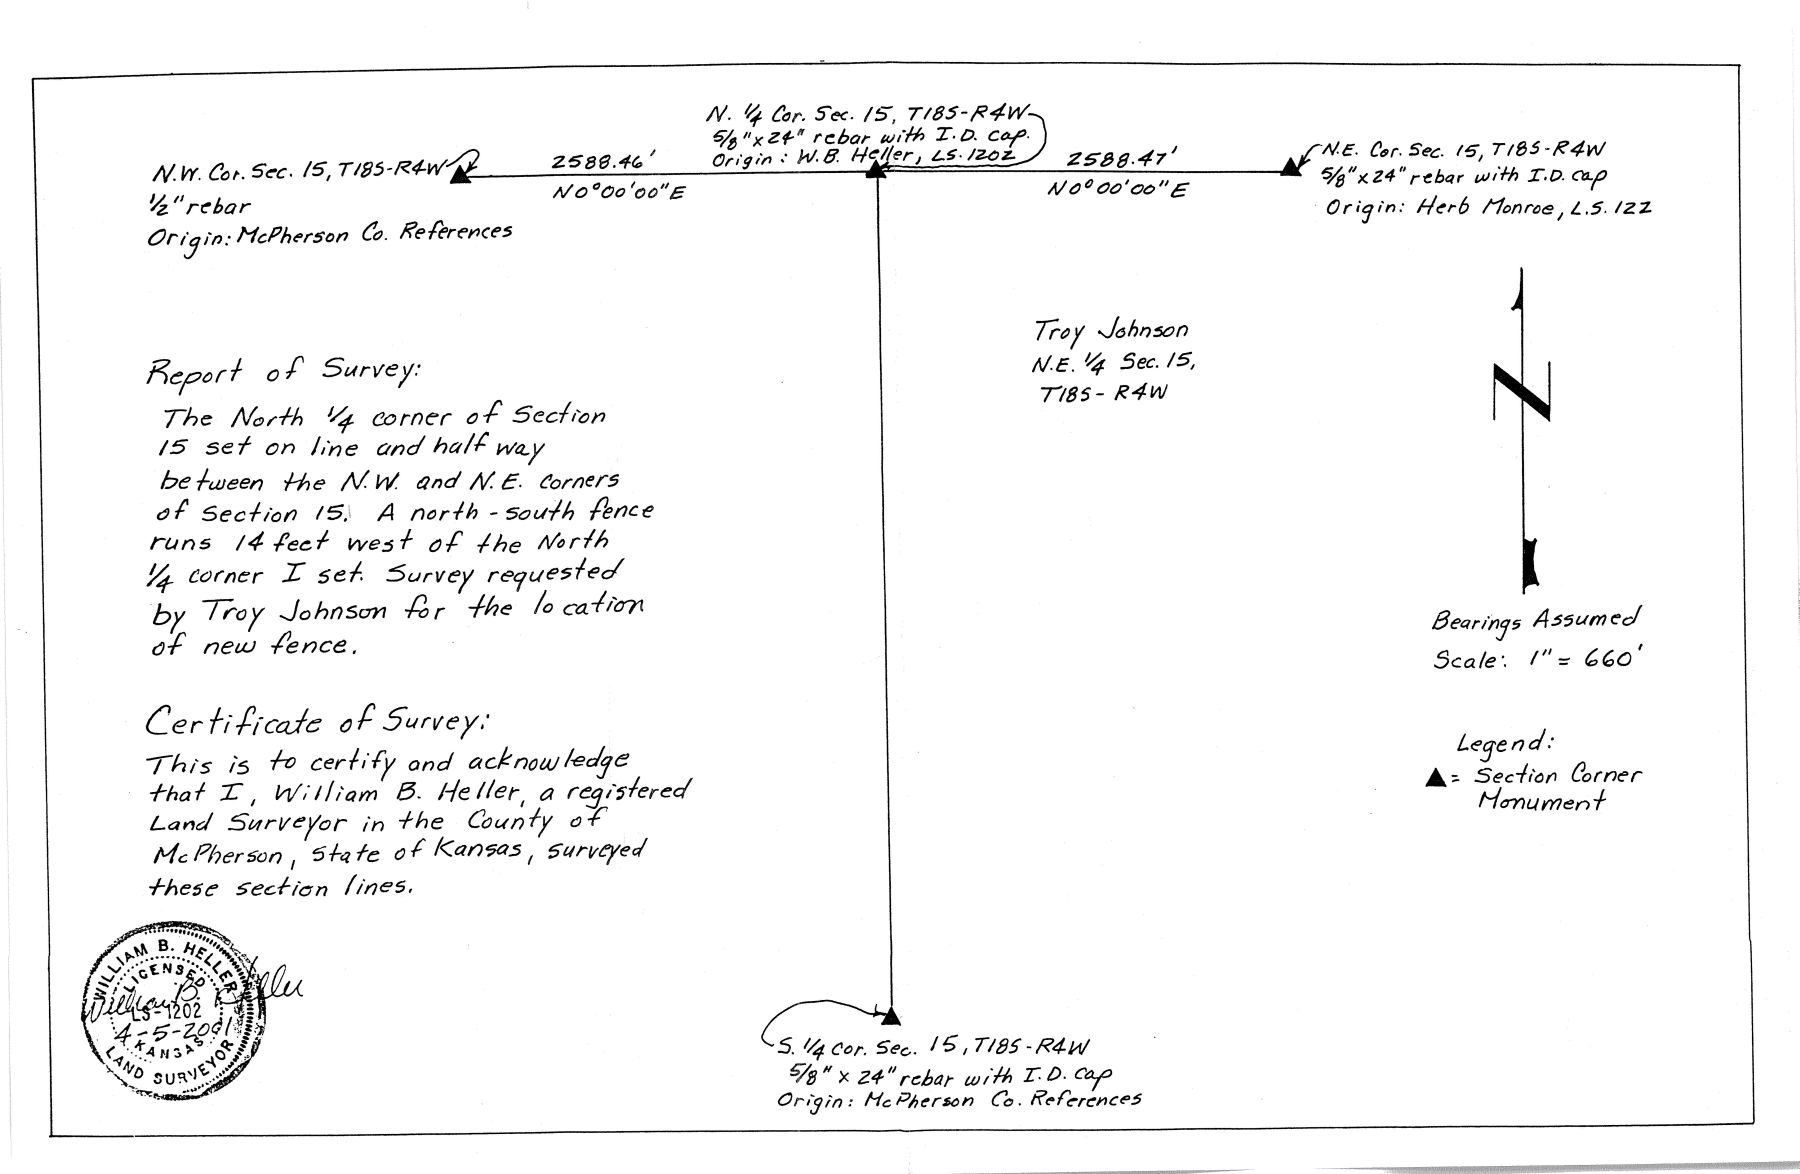 N. 1/4 Cor. Sec. 15, T18S-R4W
5/8"x24" rebar with I.D. cap.
Origin: W.B. Heller, LS.1202
N.W. Cor. Sec. 15, T18S-R4W
1/2" rebar
Origin: McPherson Co. References
2588.46'
N0°00'00"E
2588.47'
N0°00'00"E
N.E. Cor. Sec. 15, T18S-R4W
5/8"x24" rebar with I.D. cap
Origin: Herb Monroe, L.S. 122
Troy Johnson
N.E. 1/4 Sec. 15,
T18S-R4W
N
Bearings Assumed
Scale: 1" = 660'
Legend:
▲ = Section Corner
Monument
Report of Survey:
The North 1/4 corner of Section
15 set on line and half way
between the N.W. and N.E. corners
of Section 15. A north-south fence
runs 14 feet west of the North
1/4 corner I set. Survey requested
by Troy Johnson for the location
of new fence.
Certificate of Survey:
This is to certify and acknowledge
that I, William B. Heller, a registered
Land Surveyor in the County of
McPherson, State of Kansas, surveyed
these section lines.
WILLIAM B. HELLER
LICENSED
William B. Heller
LS-1202
4-5-2001
KANSAS
LAND SURVEYOR
S. 1/4 Cor. Sec. 15, T18S-R4W
5/8" x 24" rebar with I.D. cap
Origin: McPherson Co. References